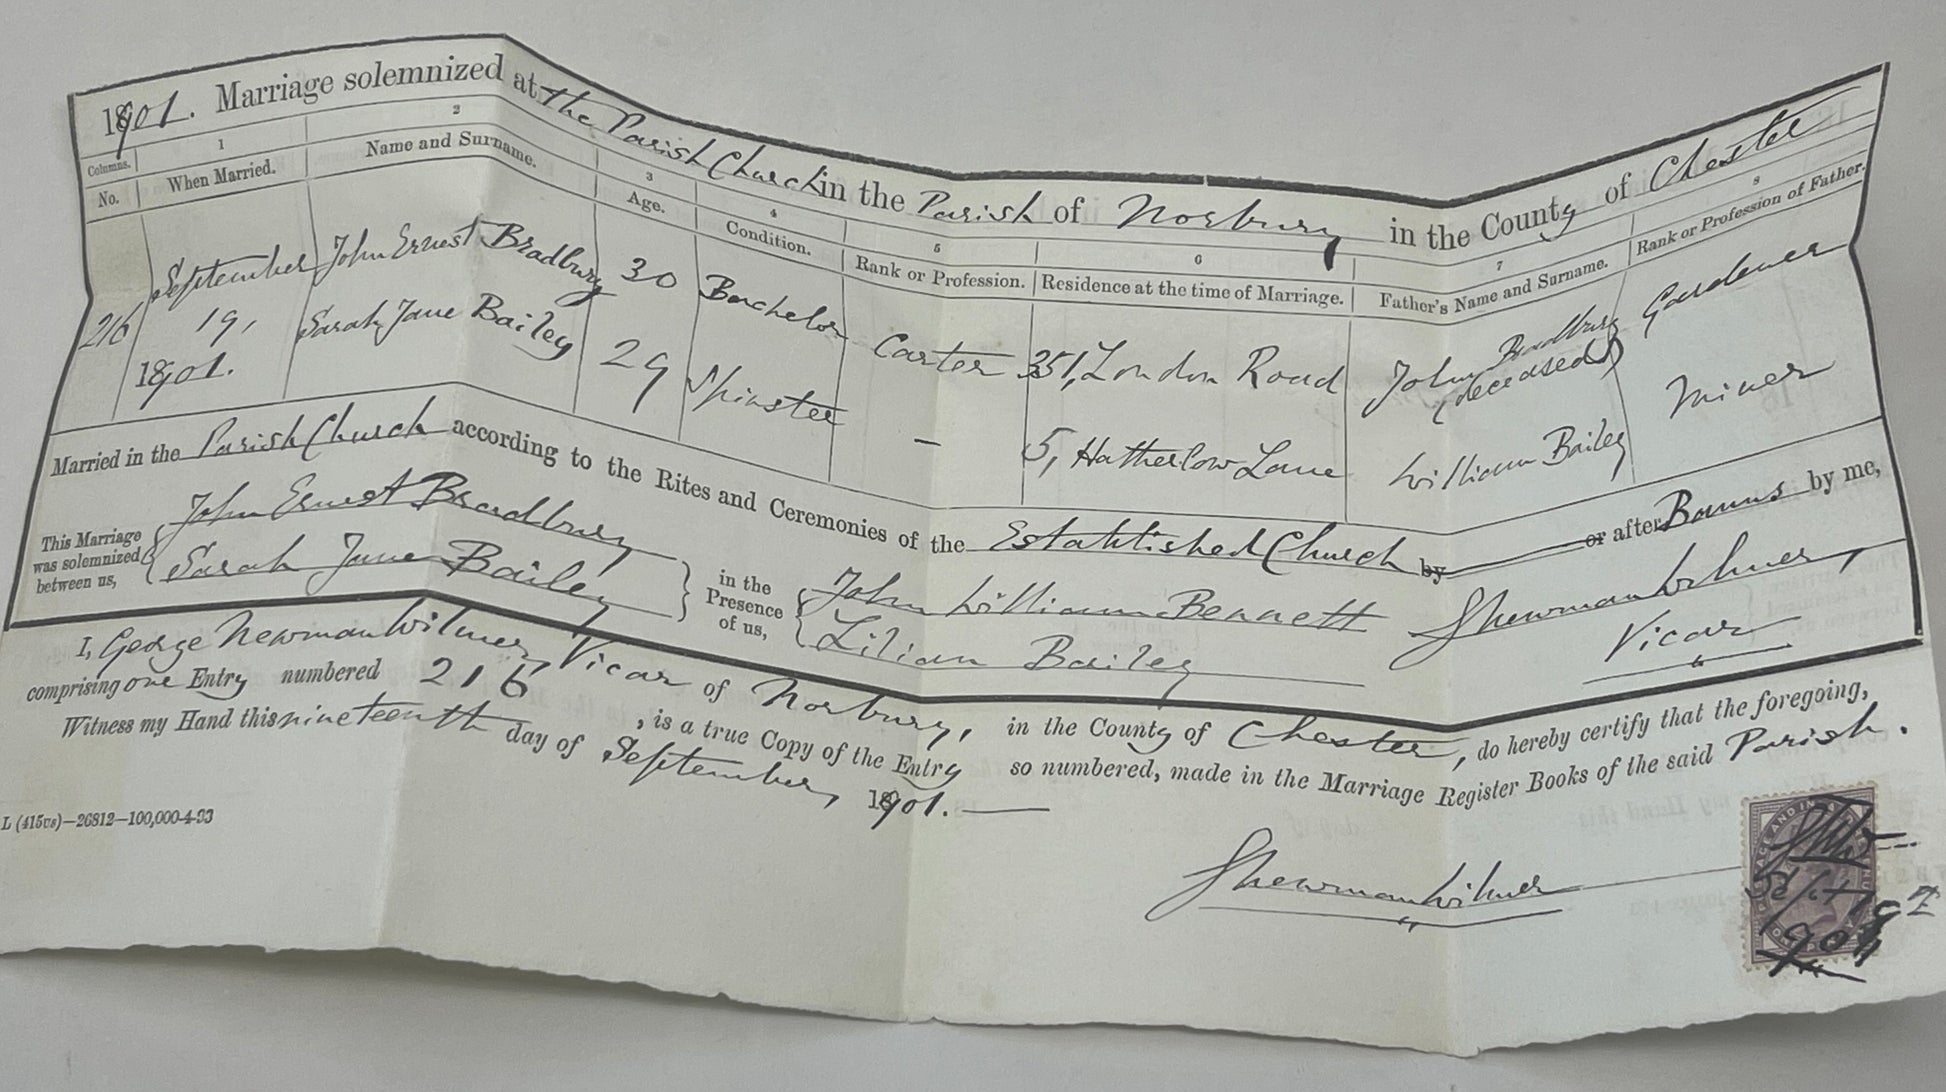 1901. Marriage solemnized at the Parish Church in the Parish of Norbury in the County of Chester
Columns. 1 2 3 4 5 6 7 8
No. When Married. Name and Surname. Age. Condition. Rank or Profession. Residence at the time of Marriage. Father's Name and Surname. Rank or Profession of Father.
216 September 19, 1901. John Ernest Bradbury 30 Bachelor Carter 351, London Road John Bradbury (deceased) Gardener
Sarah Jane Bailey 29 Spinster – 5, Hatherlow Lane William Bailey Miner
Married in the Parish Church according to the Rites and Ceremonies of the Established Church by or after Banns by me,
This Marriage was solemnized between us,
John Ernest Bradbury
Sarah Jane Bailey
in the Presence of us,
John William Bennett
Lilian Bailey
Wilmer
Vicar
I, George Newman Wilmer, Vicar of Norbury, in the County of Chester, do hereby certify that the foregoing,
comprising one Entry numbered 216, is a true Copy of the Entry so numbered, made in the Marriage Register Books of the said Parish.
Witness my Hand this nineteenth day of September, 1901.
L (415vs)—26812—100,000-4-93
Wilmer
Sept 19